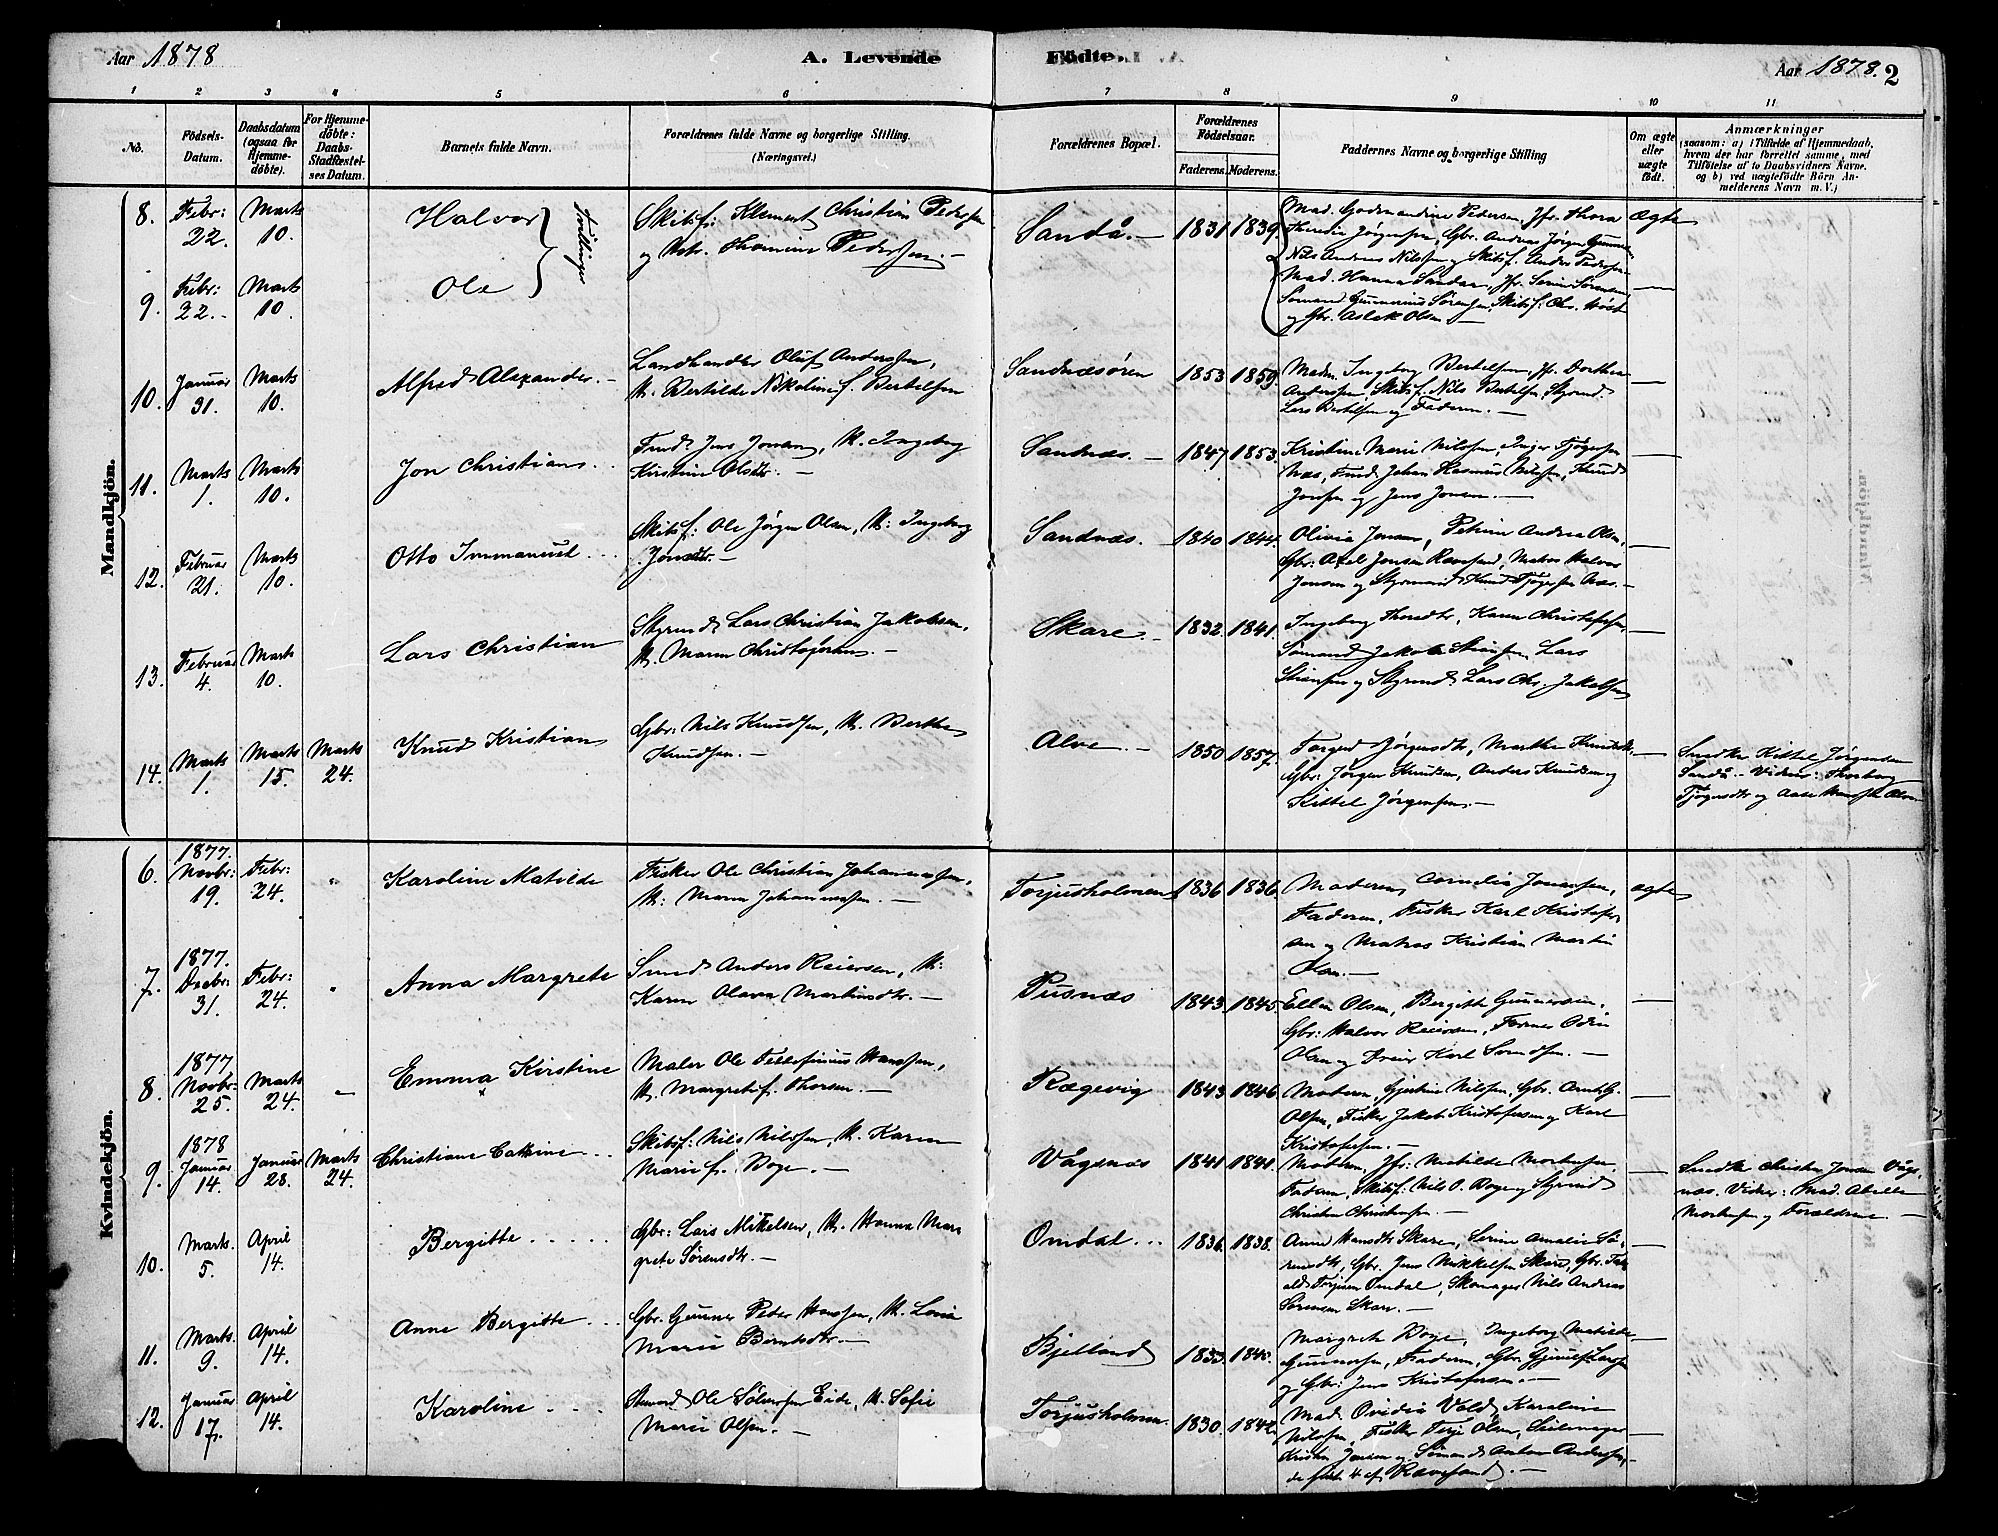 Aar 1878
A. Levende
Födte.
Aar 1878. 2
1 2 3 4 5 6 7 8 9 10 11
No.
Födsels-
Datum.
Daabsdatum
(ogsaa for
Hjemme-
döbte).
For Hjemme-
döbte:
Daabs-
Stadfæstel-
ses Datum.
Barnets fulde Navn.
Forældrenes fulde Navne og borgerlige Stilling.
(Næringsvei.)
Forældrenes Bopæl.
Forældrenes
Födselsaar.
Faderens. Moderens.
Faddernes Navne og borgerlige Stilling
Om ægte
eller
uægte
födt.
Anmærkninger
(saasom: a) i Tilfælde af Hjemmedaab,
hvem der har forrettet samme, med
Tilföielse af to Daabsvidners Navne.
og b) ved uægtefödte Börn An-
melderens Navn m. V.)
Mandkjön.
8. Febr: 22. Marts 10. Halvor Tvillinger
Skibsf: Klement Christian Pedersen
og Hstr. Thomine Pedersen. —
Sandå. — 1831 1839.
Mad. Godmandine Pedersen, Jfr. Thora ægte
Jørgensen, Gbr. Andreas Jørgen
Nils Andreas Nilssen og Skibsf. Anders Pedersen
9. Febr: 22. Marts 10. Ole
Mad. Hanna Sandaa, Jfr. Serine Sørensen,
Sømand Gunnerius Sørensen, Skibsf. Chr.
og Gbr. Aslak Olsen —
10. Januar 31. Marts 10. Alfred Alexander. —
Landhandler Oluf Anderssen,
H. Bertilde Nikoline f. Bertelsen
Sandnæsøren 1853 1859.
Madm. Ingeborg Bertelsen, Jfr. Dorthea
Anderssen, Skibsf. Nils Bertelsen, Styrmd
Lars Bertelsen og Faderen. —
11. Marts 1. Marts 10. Jon Christian
Jens Jonsen, H. Ingeborg
Kirstine Olsdtr. —
Sandnæs. — 1847 1853.
Kristine Marie Nilssen, Inger Tjøgersen
Næs, Johan Rasmus Nilssen, Knud
Jonsen og Jens Jonsen. —
12. Februar 21. Marts 10. Otto Immanuel
Skibsf: Ole Jørgen Olsen, H: Ingeborg
Jonsdtr. —
Sandnæs. — 1840 1844.
Olivia Jonsen, Petrine Andrea Olsen,
Gbr: Axel Jonsen Ravesand, Matros Halvor
Jonsen og Styrmand Knud Tjøgersen Næs. —
13. Februar 4. Marts 10. Lars Christian
Styrmd Lars Christian Jakobsen,
H. Maren Christophersen. —
Skare. — 1832. 1841.
Ingeborg Thorsdtr, Karen Christofersen,
Sømand Jakob Stiansen, Lars
Stiansen og Styrmd Lars Chr. Jakobsen
14. Marts 1. Marts 15. Marts 24. Knud Kristian
Gbr: Nils Knudsen, H. Berthe
Knudsen. —
Alve. — 1850 1857.
Torger Jørgensdtr, Marthe Knudsdtr
Gbr: Jørgen Knudsen, Anders Knudsen og
Kittel Jørgensen. —
Kittel Jørgensen
Sandå. — Vidner: Thorborg
Tjøgersdtr og Aase
Kvindekjön.
6. 1877. Novbr: 19. Febr: 24. Karoline Matilde
Fisker Ole Christian Johannessen,
H: Maren Johannessen. —
Torjusholmen 1836 1836.
Moderen, Cornelia Jonassen, ægte
Faderen, Fisker Karl Kristofer-
sen og Matros Kristian Martin
Olsen. —
7. 1877. Decbr: 31. Febr: 24. Anna Margrete
Smed Anders Reiersen, H:
Karen Olava Martinsdtr. —
Pusnæs 1843. 1845.
Ellen Olsen, Bergitte Gunnersen,
Gbr: Halvor Reiersen, Odin
Olsen og Karl Svendsen. —
8. 1877 Novbr: 25. Marts 24. Emma Kirstine
Maler Ole Tellefinius Hanssen,
H. Margrete f. Thorsen. —
Rægevig 1843 1846.
Moderen, Gjertine Nilssen, Gbr. Arnt G.
Olsen, Fisker Jakob Kristofersen og Karl
Kristofersen. —
9. 1878 Januar 14. Januar 28. Marts 24. Christiane Catrine
Skibsf: Nils Nilssen, H. Karen
Marie f. Boye. —
Vågsnæs 1841 1841.
Moderen, Jfr: Matilde Mortensen,
Faderen, Skibsf: Nils O. Boye og Styrmd
Christen Christensen. —
Christen Jonsen Vågs-
næs. Vidner: Mad.
Mortensen og Forældrene. —
10. Marts. 5. April 14. Bergitte
Gbr: Lars Mikelsen, H. Hanna Mar-
grete Sørensdtr. —
Omdal 1836. 1838.
Anne Hansdtr Skare, Serine Amalie Sø-
rensdtr, Gbr. Jens Mikkelsen Skare, Gbr.
Torjusen Omdal, Skomager Nils Andreas
Sørensen Skare. —
11. Marts. 9. April 14. Anne Bergitte
Gbr. Gunner Peder Hanssen, H. Lovise
Marie Berntsdtr. —
Bjelland 1833. 1840.
Margrete Boye, Ingeborg Matilde
Gunnersen, Faderen, Gbr. Gjerulf Larsen
og Gbr: Jens Kristofersen. —
12. Januar 17. April 14. Karoline
Ole Eide, H. Sofie
Marie Olsen. —
Torjusholmen 1830. 1842.
Mad. Ovidia Vold, Karoline
Nilssen, Fisker Terje Olsen, Seilmager
Kristen Jonsen og Sømand Anton Andersen,
de første 4 af Ravesand. —